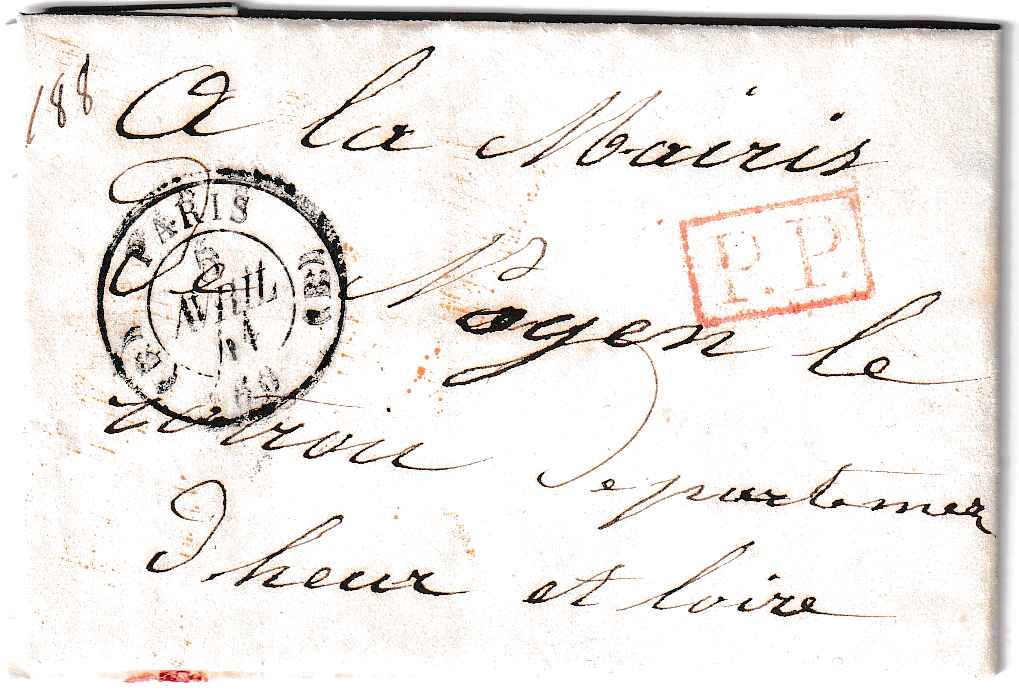 188
A la Mairis
de Nogen le
rotrou Departemen
D heur et loire
PARIS
5
AVRIL
51
(60)
P.P.